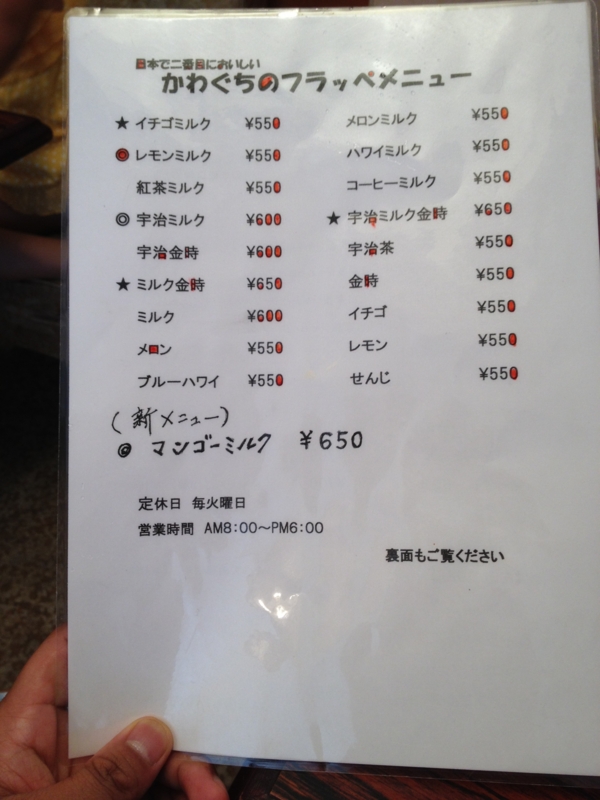 日本で二番目においしい
かわぐちのフラッペメニュー
★ イチゴミルク ¥550
◎ レモンミルク ¥550
紅茶ミルク ¥550
◎ 宇治ミルク ¥600
宇治金時 ¥600
★ ミルク金時 ¥650
ミルク ¥600
メロン ¥550
ブルーハワイ ¥550
メロンミルク ¥550
ハワイミルク ¥550
コーヒーミルク ¥550
★ 宇治ミルク金時 ¥650
宇治茶 ¥550
金時 ¥550
イチゴ ¥550
レモン ¥550
せんじ ¥550
(新メニュー)
◎ マンゴーミルク ¥650
定休日 毎火曜日
営業時間 AM8:00〜PM6:00
裏面もご覧ください